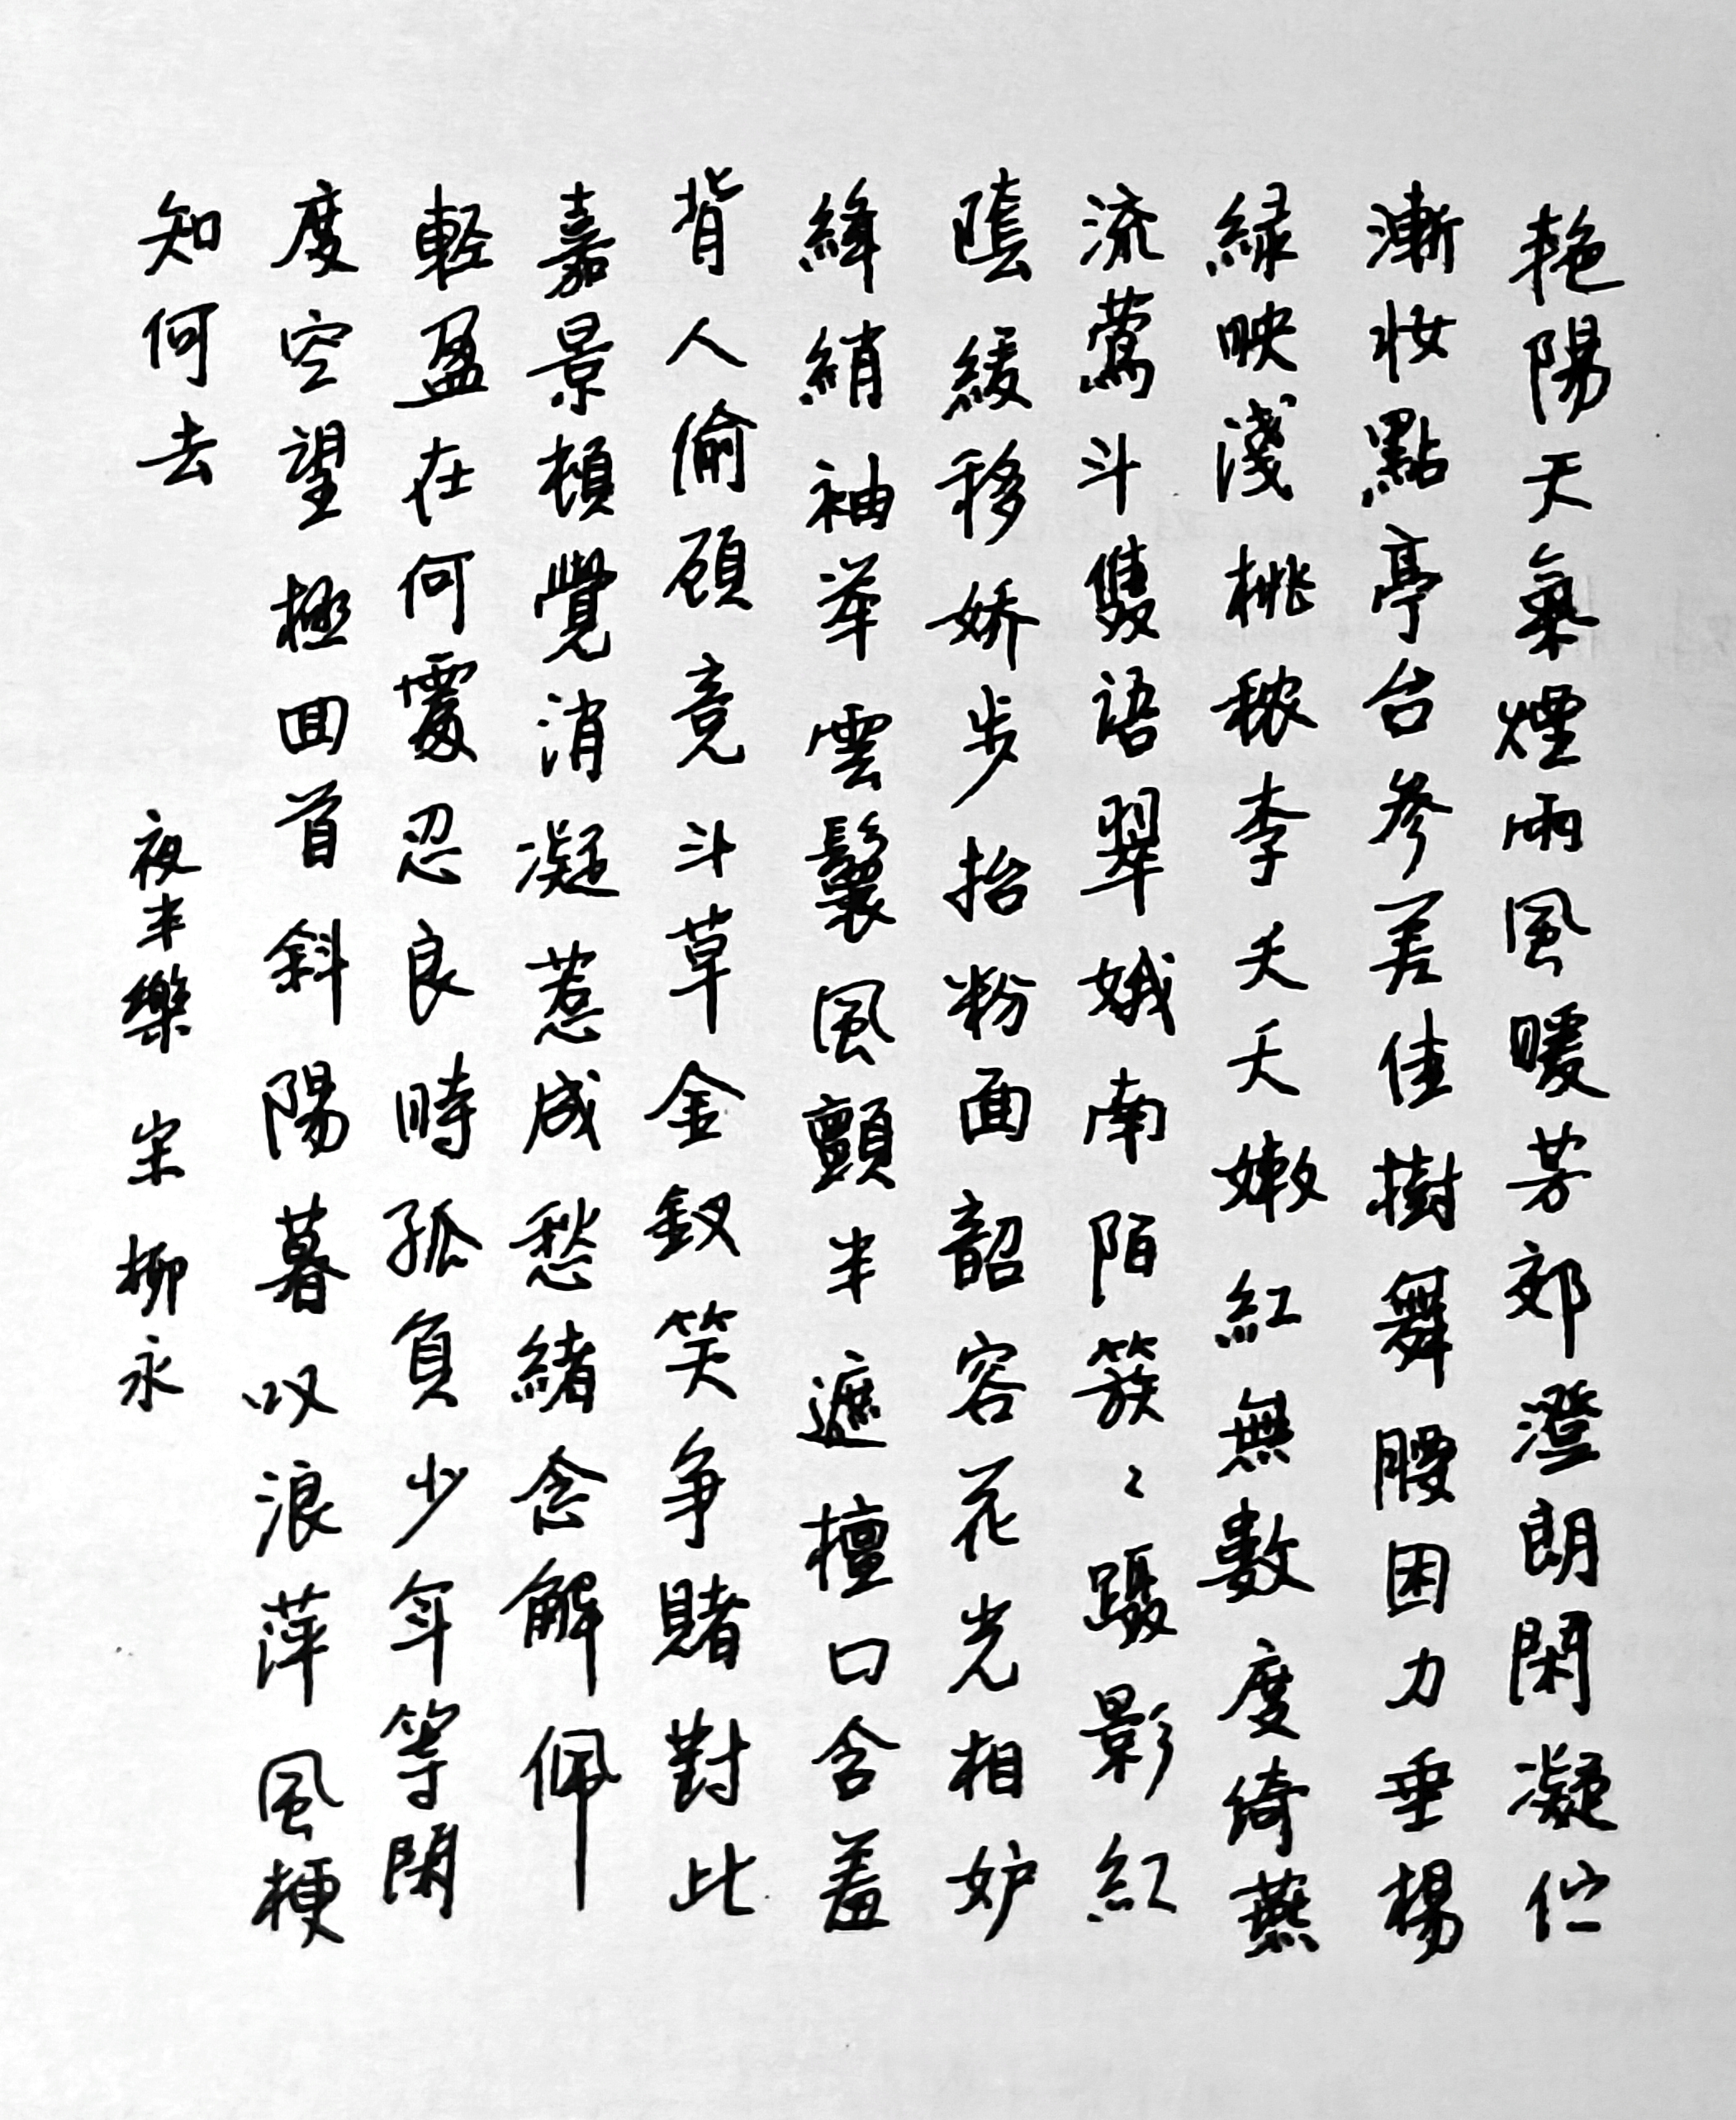 艳陽天氣煙雨風暖芳郊澄朗閑凝伫
漸妝點亭台參差佳樹舞腰困力垂楊
緑映淺桃秾李夭夭嫩紅無數度绮燕
流莺斗雙語翠娥南陌簇〻躡影紅
陰緩移娇步抬粉面韶容花光相妒
絳綃袖举雲鬟風顫半遮檀口含羞
背人偷顾竞斗草金釵笑争賭對此
嘉景頓覺消凝惹成愁緒念解佩
輕盈在何處忍良時孤負少年等閑
度空望極回首斜陽暮叹浪萍風梗
知何去
夜半樂 宋 柳永